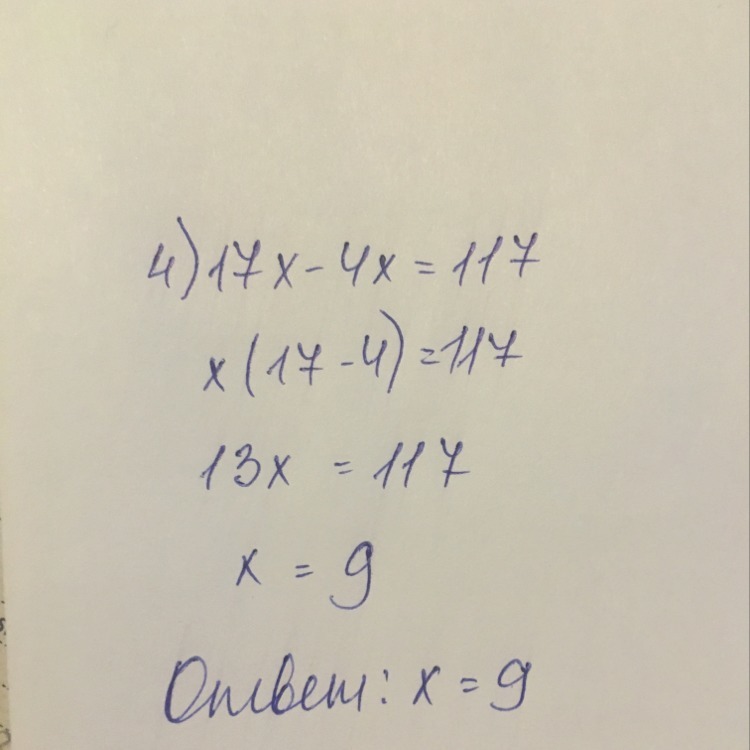 4) 17x - 4x = 117
x(17 - 4) = 117
13x = 117
x = 9
Ответ: x = 9